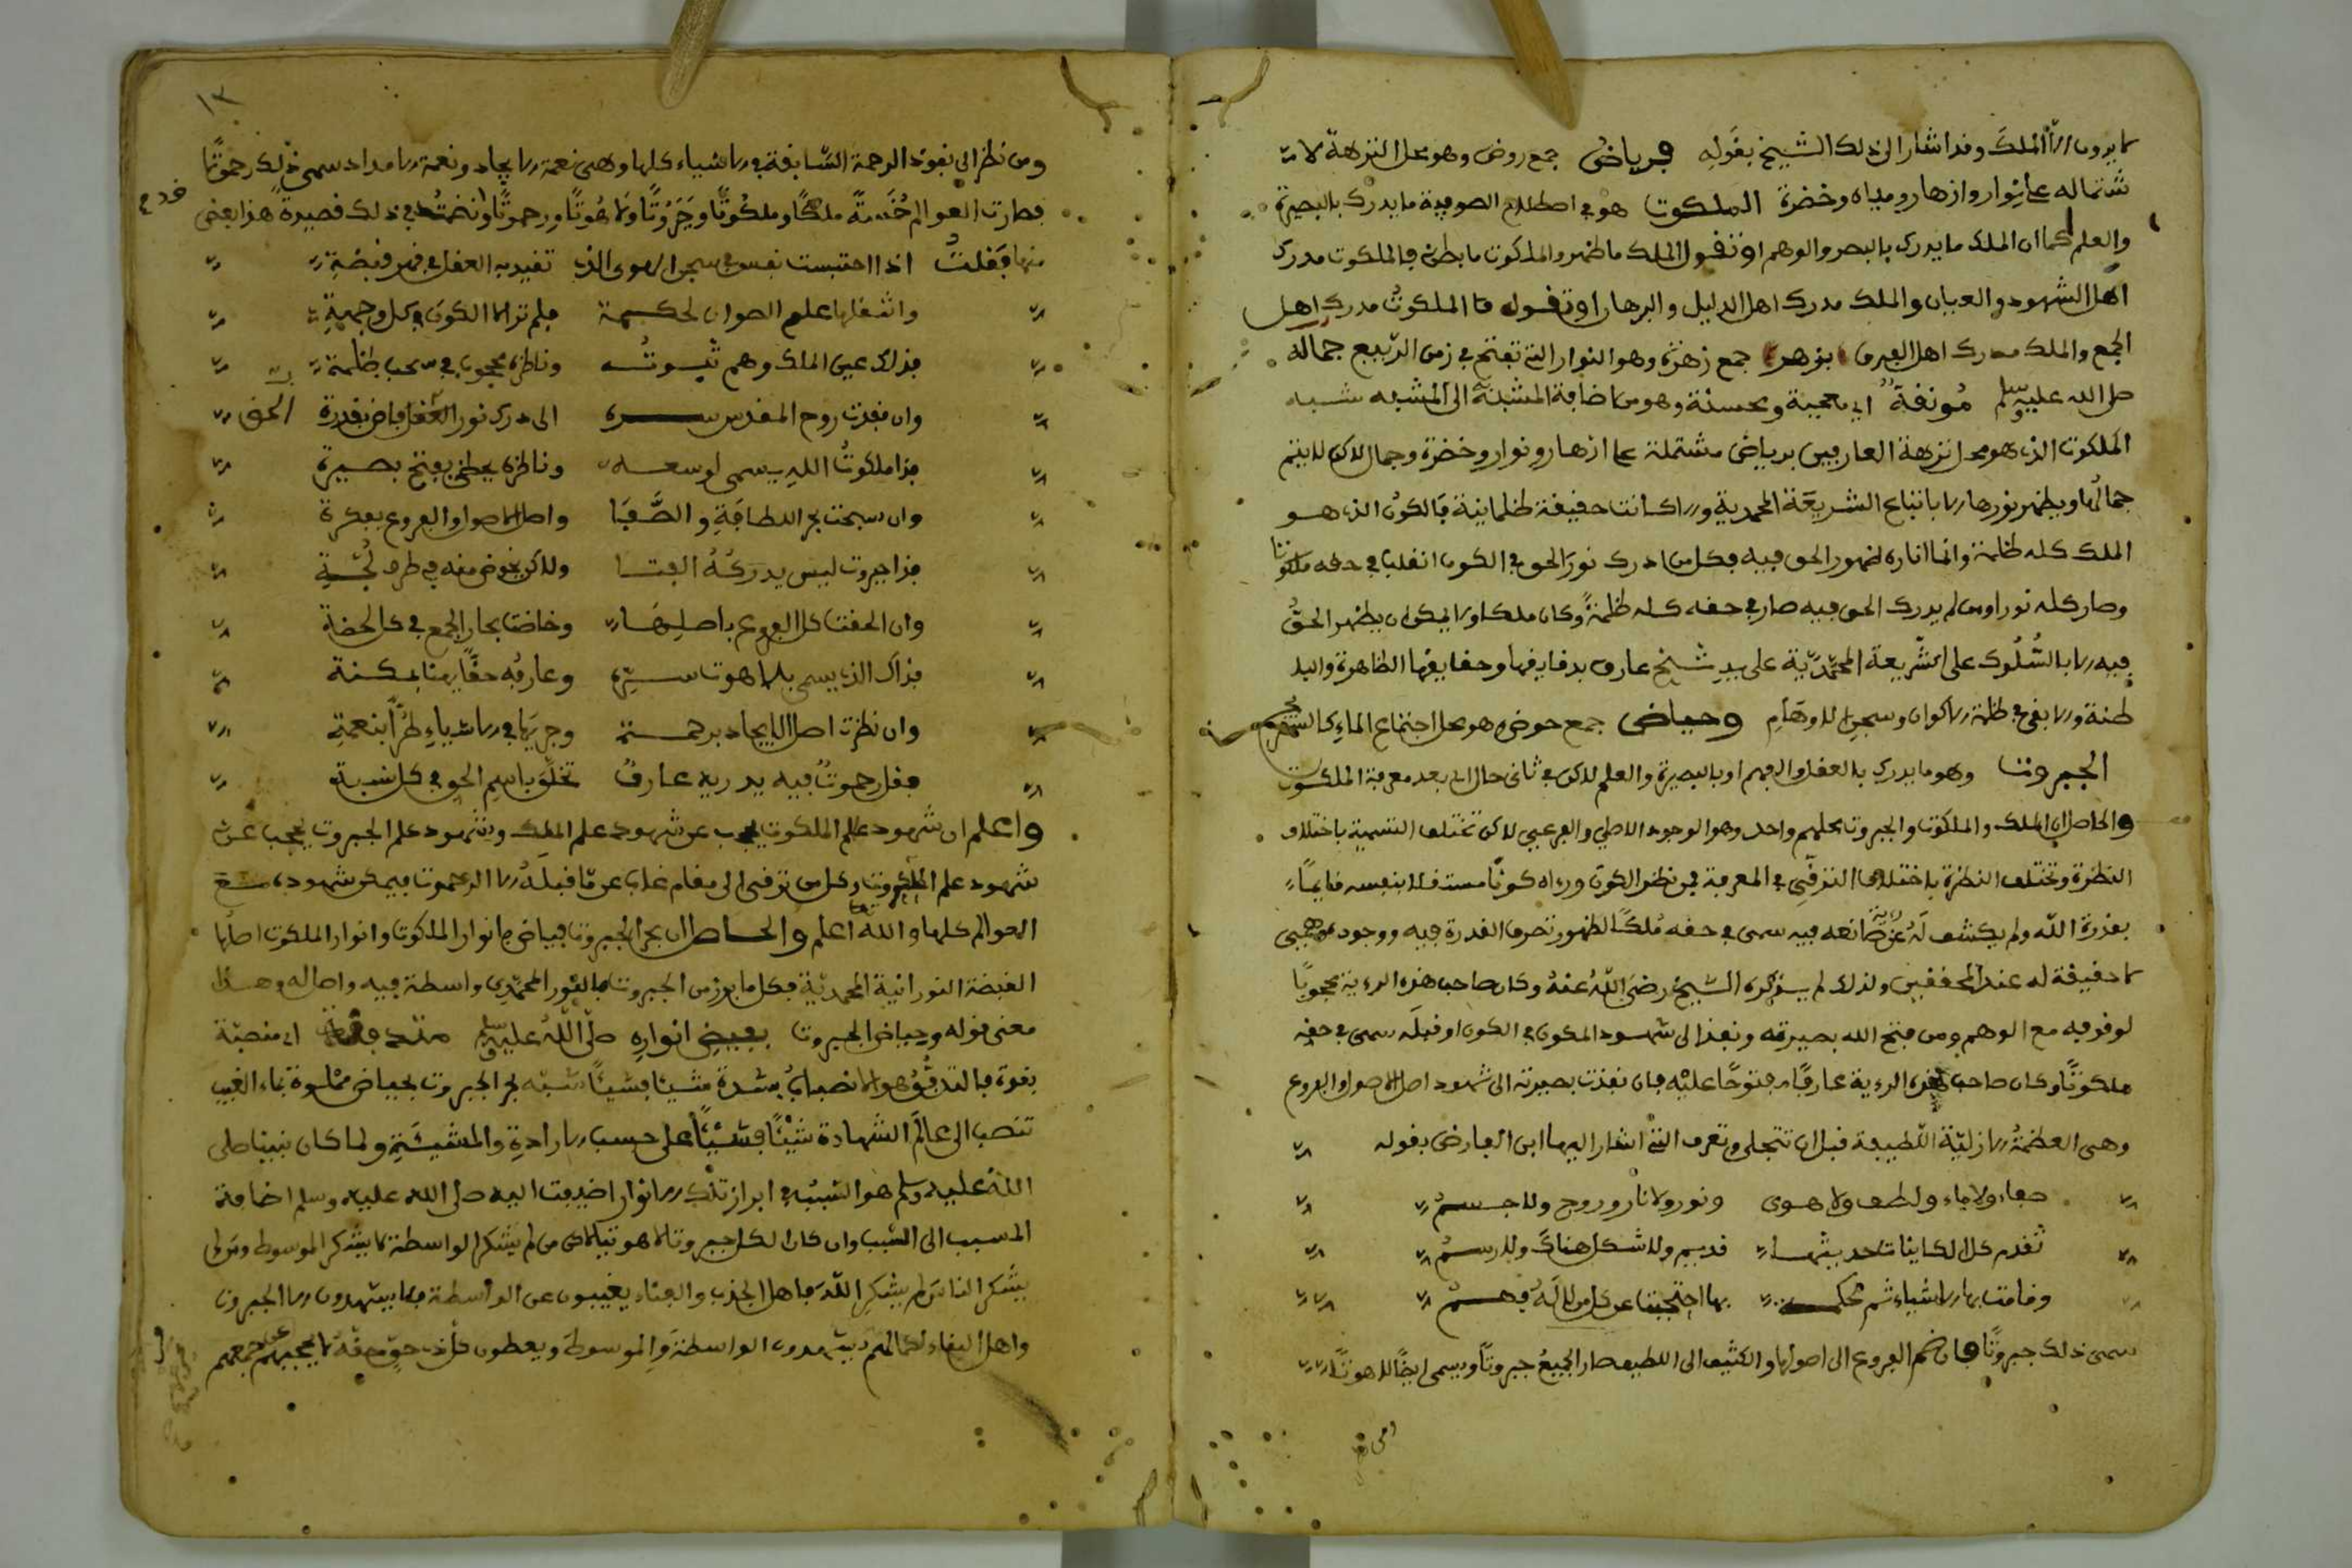 ما يرون الا الملك وقد اشار الى ذلك الشيخ بقوله فرياض جمع روض وهو محل النزهة لا
شتماله على نوار وازهار ومياه وخضرة الملكوت هو في اصطلاح الصوفية ما يدرك بالبصيرة
والعلم كما ان الملك ما يدرك بالبصر والوهم او تقول الملك ما ظهر والملكوت ما بطن فالملكوت مدرك
اهل الشهود والعيان والملك مدرك اهل الدليل والبرهان او تقول الملكوت مدرك اهل
الجمع والملك مدرك اهل الفرق بزهر جمع زهرة وهو النوار التي تفتح في زمن الربيع جماله
صلى الله عليه وسلم مونقة اي معجبة ومحسنة وهو من اضافة المشبه الى المشبه شبه
الملكوت الذي هو محل نزهة العارفين برياض مشتملة على ازهار ونوار وخضرة وجمال لاكن لا يتم
جمالها ويظهر نورها الا باتباع الشريعة المحمدية والا كانت حقيقة ظلمانية فالكون الذي هو
الملك كله ظلمة وانما اناره ظهور الحق فيه فكل من ادرك نور الحق في الكون انقلب في حقه ملكوتا
وصار كله نورا ومن لم يدرك الحق فيه صار في حقه كله ظلمة وكان ملكا ولا يمكن ان يظهر الحق
فيه الا بالسلوك على الشريعة المحمدية على يد شيخ عارف بدقايقها وحقايقها الظاهرة والبا
طنة والا بقي في ظلمة الاكوان وسجن الاوهام وحياض جمع حوض وهو محل اجتماع الماء كالصهريج
الجبروت وهو ما يدرك بالعقل والفهم او بالبصيرة والعلم لاكن في ثاني حال اي بعد معرفة الملكوت
والحاصل ان الملك والملكوت والجبروت محلهم واحد وهو الوجود الاصلي والفرعي لاكن تختلف التسمية باختلاف
النظرة وتختلف النظرة باختلاف الترقي في المعرفة فمن نظر الكون وراه كونا مستقلا بنفسه قايما
بقدرة الله ولم يكشف له عن صانعه فيه سمي في حقه ملكا لظهور تصرف القدرة فيه ووجوده وهمي
لا حقيقة له عند المحققين ولذلك لم يذكره الشيخ رضي الله عنه وكان صاحب هذه الرءية محجوبا
لوقوفه مع الوهم ومن فتح الله بصيرته ونفذ الى شهود المكون في الكون او قبله سمي في حقه
ملكوتا وكان صاحب هذه الرءية عارفا مفتوحا عليه فان نفذت بصيرته الى شهود اصل الاصول والفروع
وهي العظمة الازلية اللطيفة قبل ان تتجلى وتعرف التي اشار اليها ابن الفارض بقوله
صفاء ولا ماء ولطف ولا هوى ونور ولا نار وروح ولا جسم
تقدم كل الكاينات حديثها قديم ولا شكل هناك ولا رسم
وقامت بها الاشياء ثم لحكمة بها احتجبت عن كل من لا له فهم
سمي ذلك جبروتا فان ضم الفروع الى اصولها والكثيف الى اللطيف صار الجميع جبروتا ويسمى ايضا لاهوتا
ومن
١٣
ومن نظر الى نفوذ الرحمة السابقة في الاشياء كلها وهي نعمة الايجاد ونعمة الامداد سمي ذلك رحموتا
فصارت العوالم خمسة ملكا وملكوتا وجبروتا ولاهوتا ورحموتا ونضمت في ذلك قصيدة هذا بعض
منها فقلت اذا احتبست نفس في سجن الهوى الذي تقيد به العقل في قهر قبضة
واشغلها علم الصوان لحكمة فلم تر الا الكون في كل وجهة
فذلك عين الملك وهم ثبوته وناظره محجوب في سحب ظلمة
وان نفذت روح المقدس سره الى درك نور العقل فاض بقدرة الحق
فذا ملكوت الله يسمى لوسعه وناظره يحظى بفتح بصيرة
وان سبحت بحر اللطافة والصفا واصل الاصول والفروع بفكرة
فذا جبروت ليس يدركه الفتا ولاكن يخوض منه في طرف لجة
وان الحقت كل الفروع باصلها وخاضت بحار الجمع في كل لحضة
فذاك الذي يسمى بلاهوت سره وعارفه حقا بمكنة
وان نظرت اصل الايجاد برحمة وجريها في الاشياء طرا بنعمة
فقل رحموت فيه يدريه عارف تخلق باسم الحق في كل نسبة
واعلم ان شهود علم الملكوت يحجب عن شهود علم الملك وشهود علم الجبروت يحجب عن
شهود علم الملكوت وكل من ترقى الى مقام غاب عن ما قبله الا الرحموت فيمكن شهوده مع
العوالم كلها والله اعلم والحاصل ان بحر الجبروت فياض بانوار الملكوت وانوار الملكوت اصلها
القبضة النورانية المحمدية فكل ما برز من الجبروت فالنور المحمدي واسطة فيه واصل له وهذا
معنى قوله وحياض الجبروت بفيض انواره صلى الله عليه وسلم متدفقة اي منصبة
بقوة فالتدفق هو الانصباب بشدة شيئا فشيئا شبه بحر الجبروت بحياض مملوة بماء الغيب
تنصب الى عالم الشهادة شيئا فشيئا على حسب الارادة والمشيئة ولما كان نبينا صلى
الله عليه وسلم هو السبب في ابراز تلك الانوار اضيفت اليه صلى الله عليه وسلم اضافة
المسبب الى السبب وان كان الكل جبروتا لاكن من لم يشكر الواسطة ما يشكر الموسوط ومن لم
يشكر الناس لم يشكر الله فاهل الجذب والفناء يغيبون عن الواسطة فلا يشهدون الا الجبروت
واهل البقاء لكمالهم يشهدون الواسطة والموسوط ويعطون كل ذي حق حقه لا يحجبهم جمعهم